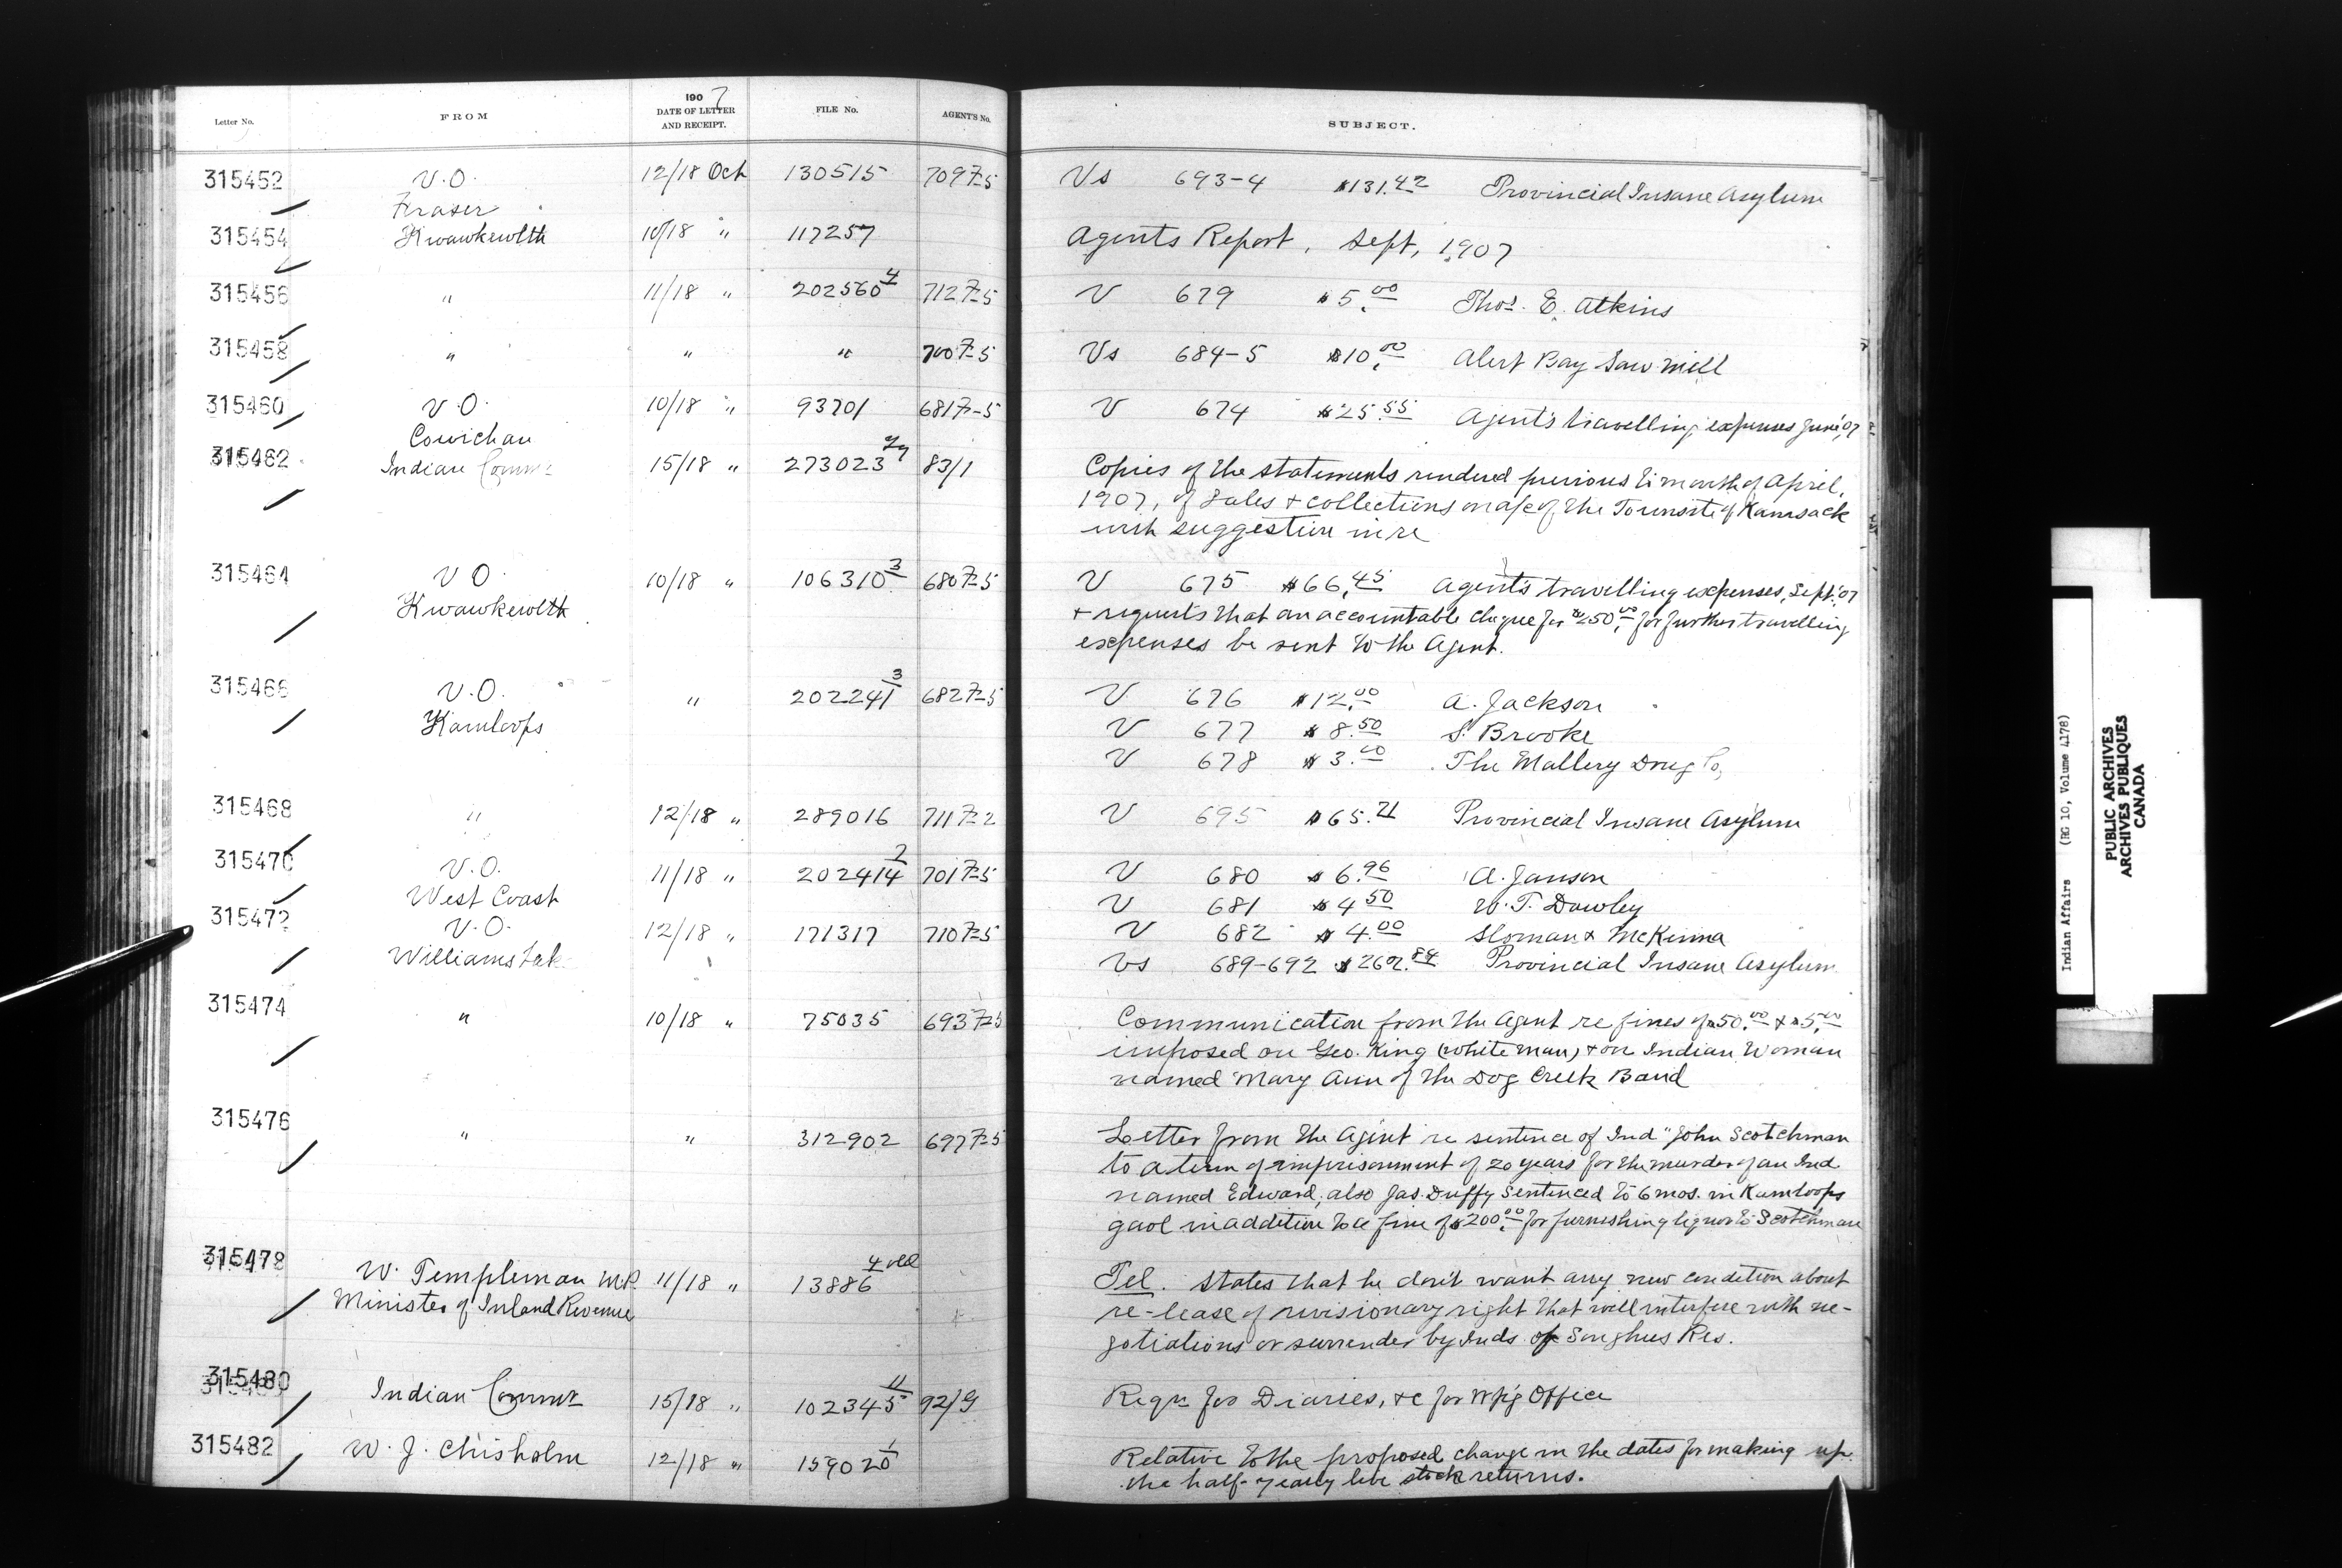 Letter No. FROM 1907 DATE OF LETTER AND RECEIPT. FILE No. AGENT'S No. SUBJECT.
315452 V.O. Fraser 12/18 Oct 130515 709 7-5 Vs 693-4 $131.42 Provincial Insane Asylum
315454 Kwawkewlth 10/18 " 117257 Agents Report, Sept, 1907
315456 " 11/18 " 202560 4 712 7-5 V 679 $5.00 Thos. E. Atkins
315458 " " " 700 7-5 Vs 684-5 $10.00 Alert Bay Saw Mill
315460 V.O. Cowichan 10/18 " 93701 681 7-5 V 674 $25.55 Agent's travelling expenses June '07
315462 Indian Commr 15/18 " 273023 83/1 Copies of the statements rendered previous to month of April,
1907, of sales & collections on a/c of the Townsite of Kamsack
with suggestion in re
315464 V.O. Kwawkewlth 10/18 " 106310 3 680 7-5 V 675 $66.45 Agent's travelling expenses, Sept. '07
& requests that an accountable cheque for $250.00 for further travelling
expenses be sent to the Agent.
315466 V.O. Kamloops " 202241 3 682 7-5 V 676 $12.00 A. Jackson
V 677 $8.50 S. Brooke
V 678 $3.00 The Mallery Drug Co,
315468 " 12/18 " 289016 711 7-2 V 695 $65.71 Provincial Insane Asylum
315470 V.O. West Coast 11/18 " 202414 2 701 7-5 V 680 $6.96 A. Janson
V 681 $4.50 W. T. Dawley
315472 V.O. Williams Lake 12/18 " 171317 710 7-5 V 682 $4.00 Sloman & McKinna
Vs 689-692 $262.84 Provincial Insane Asylum
315474 " 10/18 " 75035 693 7-5 Communication from the Agent re fines of $50.00 & $5.00
imposed on Geo. King (white man) & on Indian Woman
named Mary Ann of the Dog Creek Band
315476 " " 312902 697 7-5 Letter from the Agent re sentence of Ind" John Scotchman
to a term of imprisonment of 20 years for the murder of an Ind.
named Edward, also Jas. Duffy sentenced to 6 mos. in Kamloops
gaol in addition to a fine of $200.00 for furnishing liquor to Scotchman
315478 W. Templeman M.P. Minister of Inland Revenue 11/18 " 13886 4 old Tel. States that he don't want any new condition about
re-lease of revisionary right that will interfere with ne-
gotiations or surrender by Inds. of Songhees Res.
315480 Indian Commr 15/18 " 102345 11 92/9 Reqn for Diaries, &c for Wpg Office
315482 W. J. Chisholm 12/18 " 159020 1 Relative to the proposed change in the dates for making up
the half-yearly live stock returns.
Indian Affairs (RG 10, Volume 4178)
PUBLIC ARCHIVES
ARCHIVES PUBLIQUES
CANADA